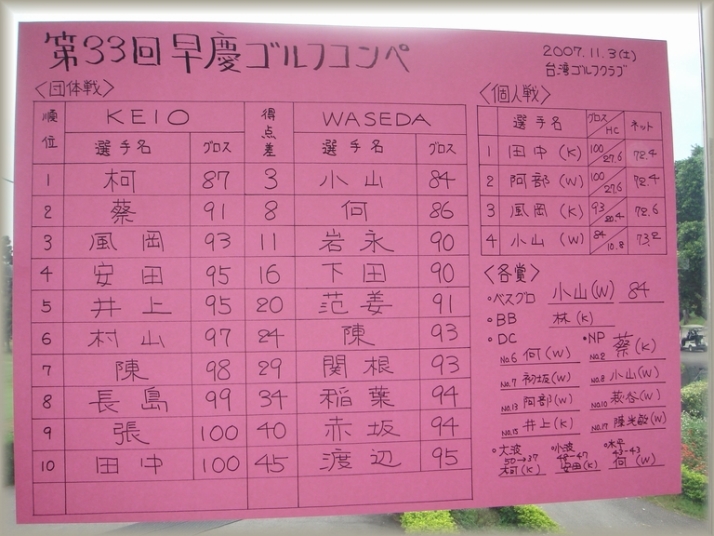 第33回早慶ゴルフコンペ
2007.11.3(土)
台湾ゴルフクラブ
〈団体戦〉
順位 KEIO 得点差 WASEDA
選手名 グロス 選手名 グロス
1 柯 87 3 小山 84
2 蔡 91 8 何 86
3 風岡 93 11 岩永 90
4 安田 95 16 下田 90
5 井上 95 20 范姜 91
6 村山 97 24 陳 93
7 陳 98 29 関根 93
8 長島 99 34 稲葉 94
9 張 100 40 赤坂 94
10 田中 100 45 渡辺 95
〈個人戦〉
選手名 グロス/HC ネット
1 田中(K) 100/27.6 72.4
2 阿部(W) 100/27.6 72.4
3 風岡(K) 93/20.4 72.6
4 小山(W) 84/10.8 73.2
〈各賞〉
•ベスグロ 小山(W) 84
•BB 林(K)
•DC •NP
No.6 何(W) No.2 蔡(K)
No.7 初坂(W) No.8 小山(W)
No.13 阿部(W) No.10 (W)
No.15 井上(K) No.17 (W)
•大波 •小波 •水平
50→37 48-47 43-43
柯(K) 安田(K) 何(W)